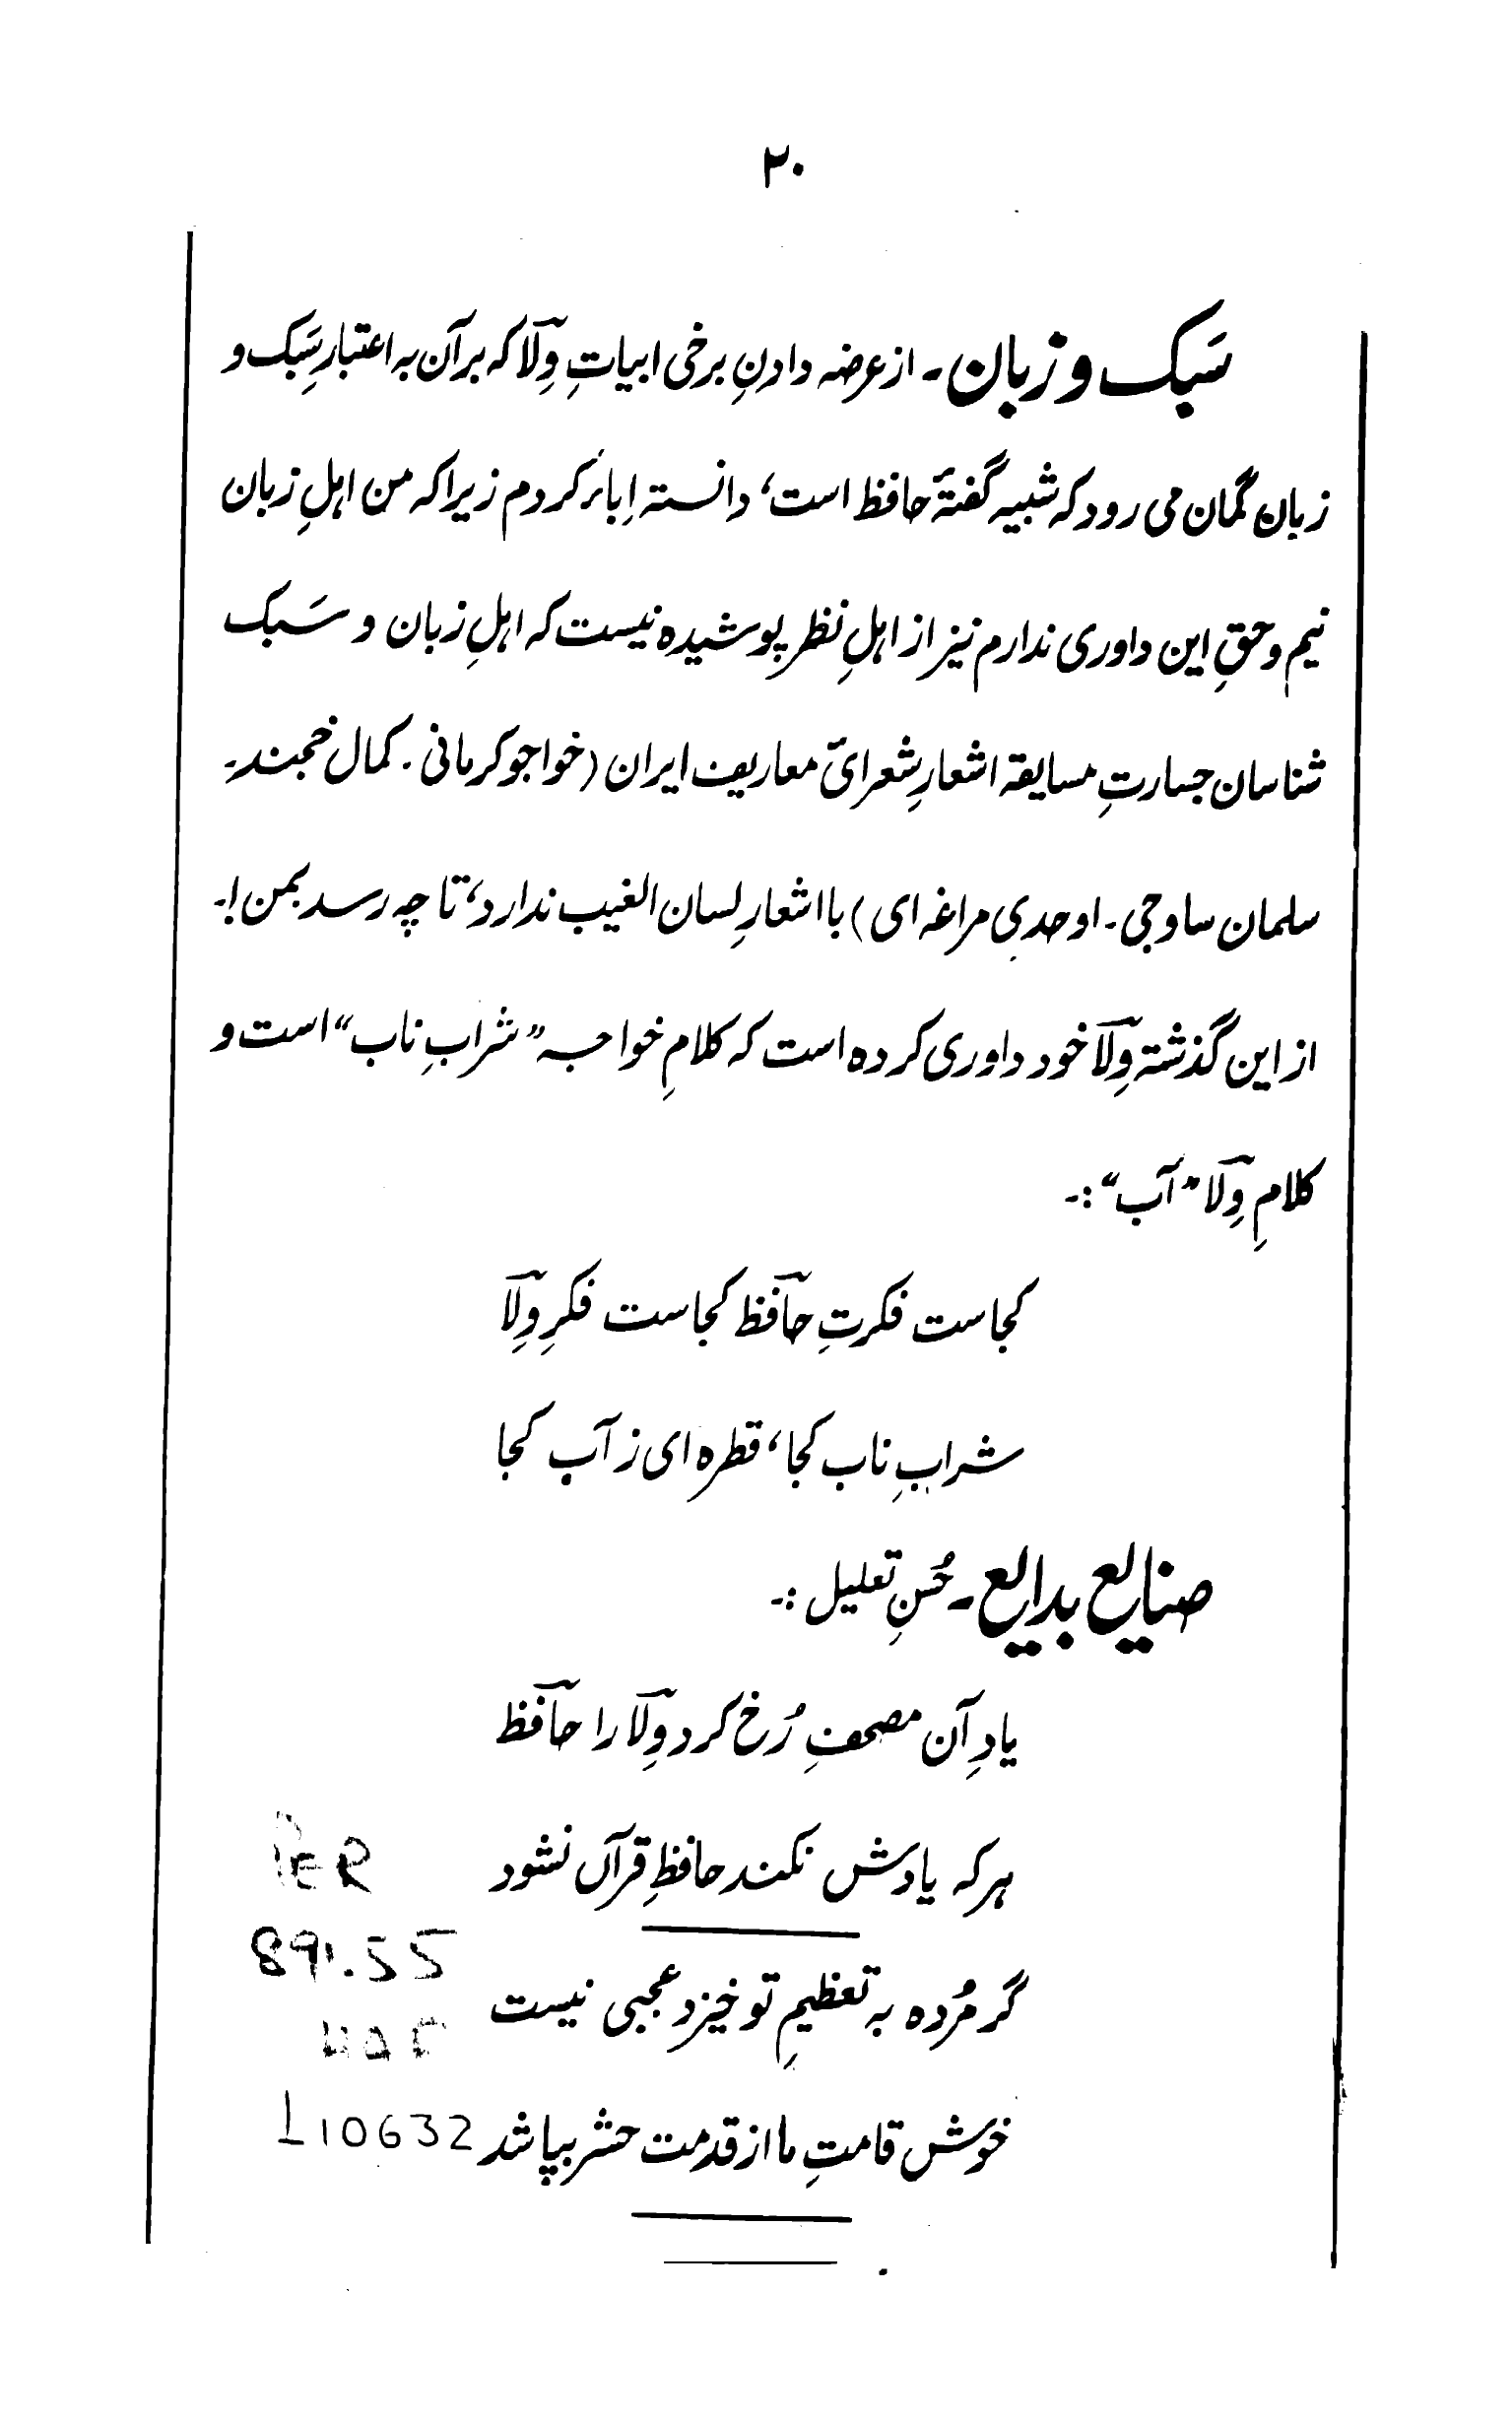 ۲۰
سَبک و زبان۔ از عرضہ دادنِ برخی ابیاتِ وِلّا کہ بر آن بہ اعتبارِ سَبک و
زبان گمان می رود کہ شبیہ گفتۂ حافظ است، دانستہ اِباءَ کردم زیرا کہ من اہلِ زبان
نیم و حقِ این داوری ندارم نیز از اہلِ نظر پوشیدہ نیست کہ اہلِ زبان و سَبک
شناسان جسارتِ مسایقہ اشعارِ شعرائ معاریف ایران (خواجو کرمانی۔ کمال خجند۔
سلمان ساوجی۔ اوحدی مراغہ ای) با اشعارِ لسان الغیب ندارد، تا چہ رسد بمن!۔
از این گذشتہ وِلّا خود داوری کردہ است کہ کلامِ خواجہ "شرابِ ناب" است و
کلامِ وِلّا "آب":۔
کجاست فکرتِ حافظ کجاست فکرِ وِلّا
شرابِ ناب کجا، قطرہ ای ز آب کجا
صنایع بدایع۔ حُسنِ تعلیل:۔
یادِ آن مصحفِ رُخ کرد وِلّا را حافظ
ہر کہ یادش نکند حافظِ قرآں نشود
PER
891.55
گر مُردہ بہ تعظیمِ تو خیزد عجبی نیست
HAF
خوش قامتِ ما از قدمت حشر بپا شد
L10632